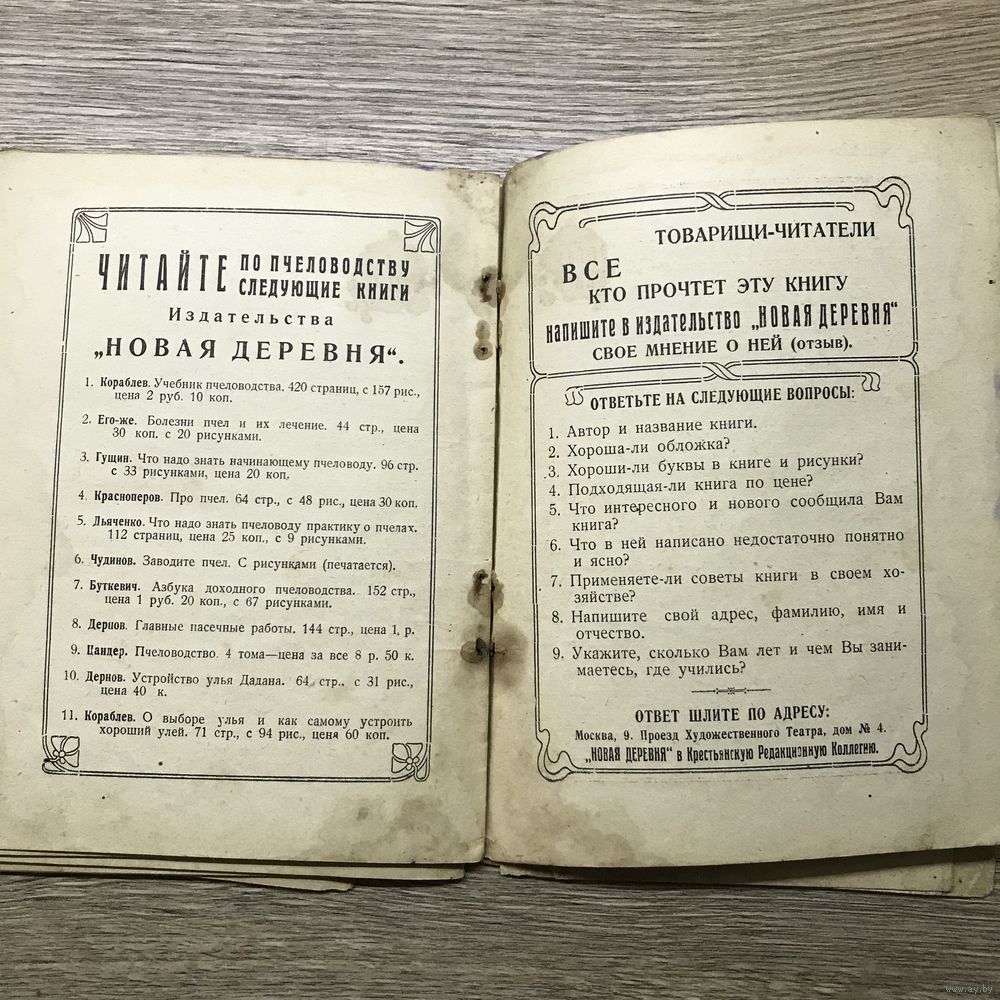 ЧИТАЙТЕ ПО ПЧЕЛОВОДСТВУ
СЛЕДУЮЩИЕ КНИГИ
Издательства
„НОВАЯ ДЕРЕВНЯ“.
1. Кораблев. Учебник пчеловодства. 420 страниц, с 157 рис.,
цена 2 руб. 10 коп.
2. Его-же. Болезни пчел и их лечение. 44 стр., цена
30 коп. с 20 рисунками.
3. Гущин. Что надо знать начинающему пчеловоду. 96 стр.
с 33 рисунками, цена 20 коп,
4. Красноперов. Про пчел. 64 стр., с 48 рис., цена 30 коп.
5. Дьяченко. Что надо знать пчеловоду практику о пчелах.
112 страниц, цена 25 коп., с 9 рисунками.
6. Чудинов. Заводите пчел. С рисунками (печатается).
7. Буткевич. Азбука доходного пчеловодства. 152 стр.,
цена 1 руб. 20 коп., с 67 рисунками.
8. Дернов. Главные пасечные работы. 144 стр., цена 1 р.
9. Цандер. Пчеловодство. 4 тома—цена за все 8 р. 50 к.
10. Дернов. Устройство улья Дадана. 64 стр.. с 31 рис.,
цена 40 к.
11. Кораблев. О выборе улья и как самому устроить
хороший улей. 71 стр., с 94 рис., цена 60 коп.
ТОВАРИЩИ-ЧИТАТЕЛИ
ВСЕ
КТО ПРОЧТЕТ ЭТУ КНИГУ
НАПИШИТЕ В ИЗДАТЕЛЬСТВО „НОВАЯ ДЕРЕВНЯ“
СВОЕ МНЕНИЕ О НЕЙ (отзыв).
ОТВЕТЬТЕ НА СЛЕДУЮЩИЕ ВОПРОСЫ:
1. Автор и название книги.
2. Хороша-ли обложка?
3. Хороши-ли буквы в книге и рисунки?
4. Подходящая-ли книга по цене?
5. Что интересного и нового сообщила Вам
книга?
6. Что в ней написано недостаточно понятно
и ясно?
7. Применяете-ли советы книги в своем хо-
зяйстве?
8. Напишите свой адрес, фамилию, имя и
отчество.
9. Укажите, сколько Вам лет и чем Вы зани-
маетесь, где учились?
ОТВЕТ ШЛИТЕ ПО АДРЕСУ:
Москва, 9. Проезд Художественного Театра, дом № 4.
„НОВАЯ ДЕРЕВНЯ“ в Крестьянскую Редакционную Коллегию.
www.ay.by